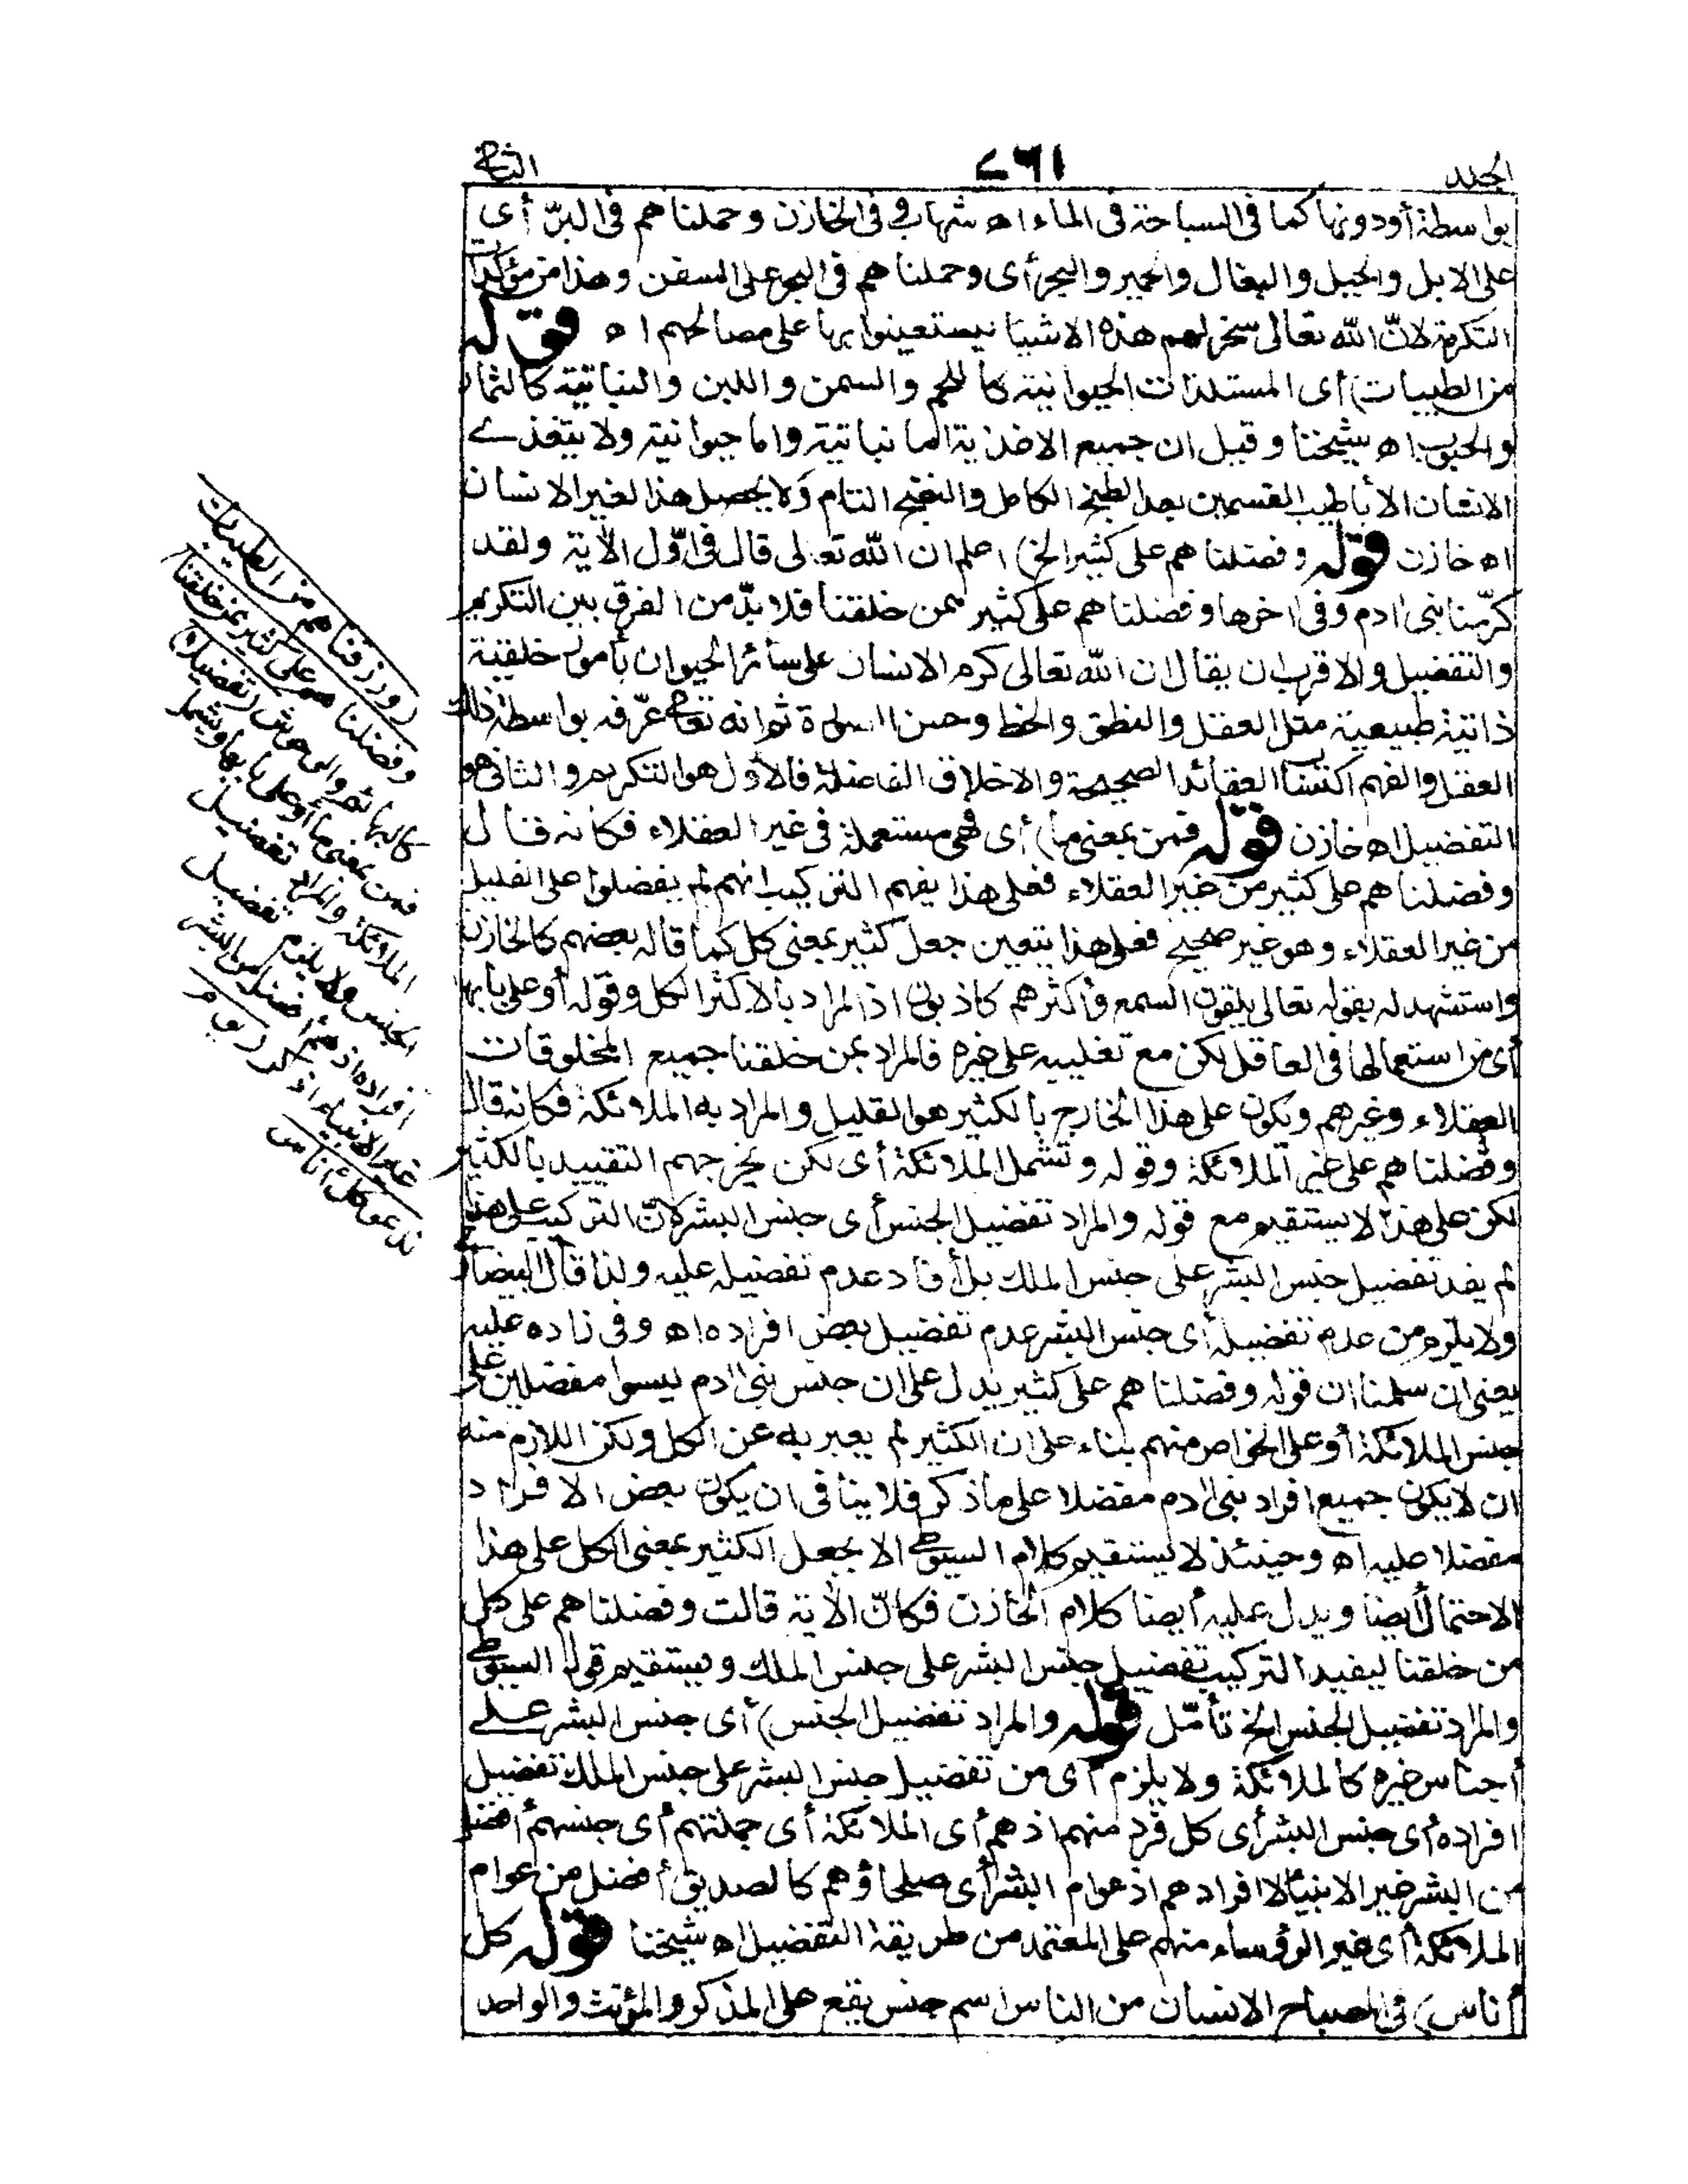 الجلد
٧٦١
الثانى
بواسطة أو دونها كما فى السباحة فى الماء اه شهاب وفى الخازن وحملناهم فى البرّ أى
على الابل والخيل والبغال والحمير والبحر أى وحملناهم فى البحر على السفن وهذا من مؤكدات
التكرمة لانّ الله تعالى سخر لهم هذه الاشياء ليستعينوا بها على مصالحهم اه قوله
من الطيبات) أى المستلذات الحيوانية كاللحم والسمن واللبن والنباتية كالثمار
والحبوب اه شيخنا وقيل ان جميع الاغذية اما نباتية واما حيوانية ولا يتغذے
الانسان الا بأطيب القسمين بعد الطبخ الكامل والنضج التام ولا يحصل هذا لغير الانسان
اه خازن قوله وفضلناهم على كثير الخ) اعلم ان الله تعالى قال فى اوّل الآية ولقد
كرّمنا بنى ادم وفى اخرها وفضلناهم على كثير ممن خلقنا فلا بدّ من الفرق بين التكريم
والتفضيل والاقرب ان يقال ان الله تعالى كرم الانسان على سائر الحيوان بأمور خلقية
ذاتية طبيعية مثل العقل والنطق والخط وحسن الصورة ثم انه تعالى عرّفه بواسطة ذلك
العقل والفهم اكتساب العقائد الصحيحة والاخلاق الفاضلة فالأول هو التكريم والثانى هو
التفضيل اه خازن قوله فمن بمعنى ما) أى فهى مستعملة فى غير العقلاء فكانه قال
وفضلناهم على كثير من غير العقلاء فعلى هذا يفهم التركيب انهم لم يفضلوا على القليل
من غير العقلاء وهو غير صحيح فعلى هذا يتعين جعل كثير بمعنى كل كما قاله بعضهم كالخازن
واستشهد له بقوله تعالى يلقون السمع وأكثرهم كاذبون اذ المراد بالاكثر الكل وقوله أو على بابها
أى من استعمالها فى العاقل لكن مع تغليبه على غيره فالمراد بمن خلقنا جميع المخلوقات
العقلاء وغيرهم ويكون على هذا الخارج بالكثير هو القليل والمراد به الملائكة فكانه قال
وفضلناهم على غير الملائكة وقوله وتشمل الملائكة أى لكن يخرجهم التقييد بالكثير
لكن على هذا لا يستقيم مع قوله والمراد تفضيل الجنس أى جنس البشر لانّ التركيب على هذا
لم يفد تفضيل جنس البشر على جنس الملك بل أفاد عدم تفضيله عليه ولذا قال البيضاوى
ولا يلزم من عدم تفضيله أى جنس البشر عدم تفضيل بعض افراده اه وفى زاده عليه
يعنى ان سلمنا ان قوله وفضلناهم على كثير يدل على ان جنس بنى ادم ليسوا مفضلين على
جنس الملائكة أو على الخواص منهم بناء على ان الكثير لم يعبر به عن الكل ولكن اللازم منه
ان لا يكون جميع افراد بنى ادم مفضلا على ما ذكر فلا ينافى ان يكون بعض الافراد
مفضلا عليه اه وحينئذ لا يستقيم كلام السيوطى الا بجعل الكثير بمعنى الكل على هذا
الاحتمال أيضا ويدل عليه أيضا كلام الخازن فكانّ الآية قالت وفضلناهم على كل
من خلقنا ليفيد التركيب تفضيل جنس البشر على جنس الملك ويستقيم قول السيوطى
والمراد تفضيل الجنس الخ تأمّل قوله والمراد تفضيل الجنس) أى جنس البشر علے
أجناس غيره كالملائكة ولا يلزم أى من تفضيل جنس البشر على جنس الملك تفضيل
افراده أى جنس البشر أى كل فرد منهم اذ هم أى الملائكة أى جملتهم أى جنسهم أفضل
من البشر غير الانبياء لا افرادهم اذ عوام البشر أى صلحاؤهم كالصديق أفضل من عوام
الملائكة أى غير الرؤساء منهم على المعتمد من طريقة التفضيل اه شيخنا قوله كل
أناس) فى المصباح الانسان من الناس اسم جنس يقع على المذكر والمؤنث والواحد
(ورزقناهم من الطيبات
وفضلناهم على كثير ممن خلقنا)
كالبهائم والوحوش (تفضيلا)
فمن بمعنى ما أو على بابها وتشمل
الملائكة والمراد تفضيل
الجنس ولا يلزم تفضيل
افراده اذ هم أفضل من البشر
غير الانبياء اذكر (يوم
ندعو كل أناس